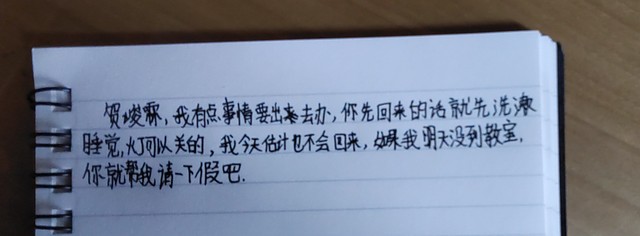 贺峻霖,我有点事情要出去办,你先回来的话就先洗漱
睡觉,灯可以关的,我今天估计也不会回来,如果我明天没到教室,
你就帮我请一下假吧.